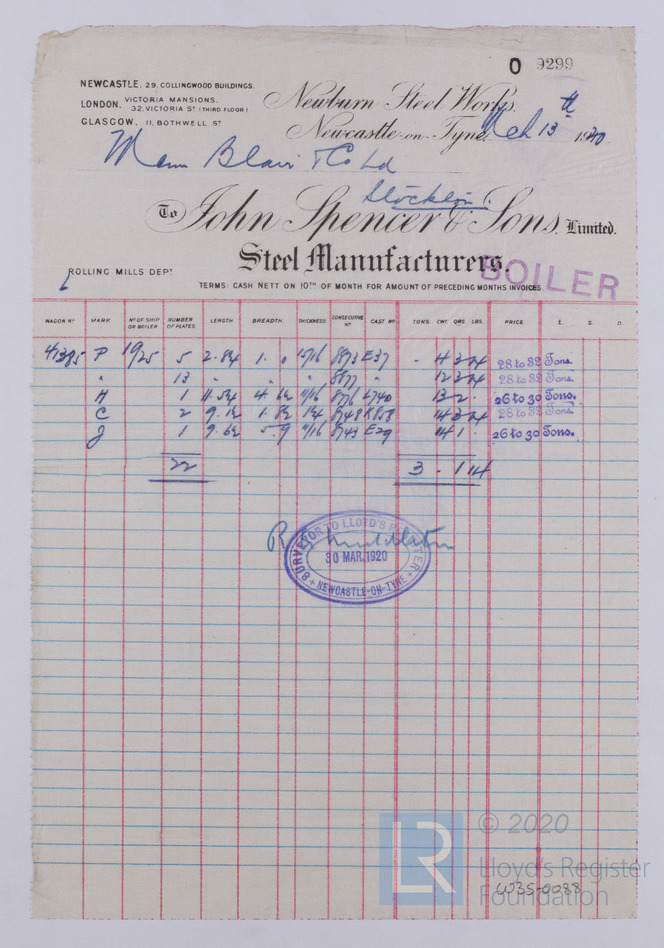 O 9299
NEWCASTLE, 29, COLLINGWOOD BUILDINGS.
LONDON, VICTORIA MANSIONS, 32, VICTORIA ST (THIRD FLOOR)
GLASGOW, 11, BOTHWELL ST
Newburn Steel Works,
Newcastle-on-Tyne, Mch 13th 1920
Blair & Co Ld
Stockton.
To John Spencer & Sons, Limited.
Steel Manufacturers.
BOILER
ROLLING MILLS DEPT
TERMS: CASH NETT ON 10TH OF MONTH FOR AMOUNT OF PRECEDING MONTHS INVOICES.
WAGON No MARK No OF SHIP OR BOILER NUMBER OF PLATES LENGTH BREADTH THICKNESS CONSECUTIVE No CAST No TONS. CWT. QRS. LBS. PRICE. £. S. D.
P 1925 5 15/16 8873 E37 28 to 32 Tons.
" 13 " 8877 " 28 to 32 Tons.
H 1 11/16 8776 13 2 . 26 to 30 Tons.
C 2 28 to 32 Tons.
J 1 5.9 11/16 8743 E29 14 1 . 26 to 30 Tons.
22 3 - 1 14
SURVEYOR TO LLOYD'S REGISTER
30 MAR. 1920
NEWCASTLE-ON-TYNE
LR
© 2020
Lloyd's Register
Foundation
W35-0088